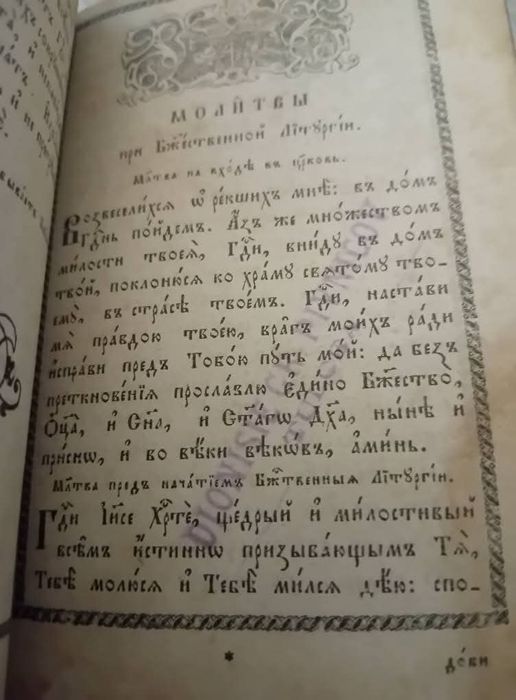 МОЛИ́ТВЫ
при Бж҃е́ственной Літꙋргі́и.
Мл҃тва на вхо́дѣ въ цр҃ковь.
Возвесели́хсѧ ѡ҆ ре́кшихъ мнѣ̀: въ до́мъ
Гдⷭ҇нь по́йдемъ. А҆́зъ же мно́жествомъ
ми́лости твоеѧ̀, Гдⷭ҇и, вни́дꙋ въ до́мъ
тво́й, поклоню́сѧ ко хра́мꙋ свѧто́мꙋ тво-
емꙋ̀, въ стра́сѣ твое́мъ. Гдⷭ҇и, наста́ви
мѧ̀ пра́вдою твое́ю, вра̑гъ мои́хъ ра́ди
и҆спра́ви предъ Тобо́ю пꙋ́ть мо́й: да безъ
преткнове́нїѧ просла́влю є҆ди́но Бж҃ество̀,
Ѻ҆ц҃а̀, и҆ Сн҃а, и҆ Ст҃а́гѡ Дх҃а, ны́нѣ и҆
при́снѡ, и҆ во вѣ́ки вѣкѡ́въ, а҆ми́нь.
Мл҃тва предъ нача́тїемъ Бж҃твенныѧ Літꙋргі́и.
Гдⷭ҇и І҆и҃се Хрⷭ҇тѐ, ще́дрый и҆ ми́лостивый
всѣ̑мъ и҆́стиннѡ призыва́ющымъ Тѧ̀,
Тебѣ̀ молю́сѧ и҆ Тебѣ̀ ми́лсѧ дѣ́ю: спо-
*
до́би